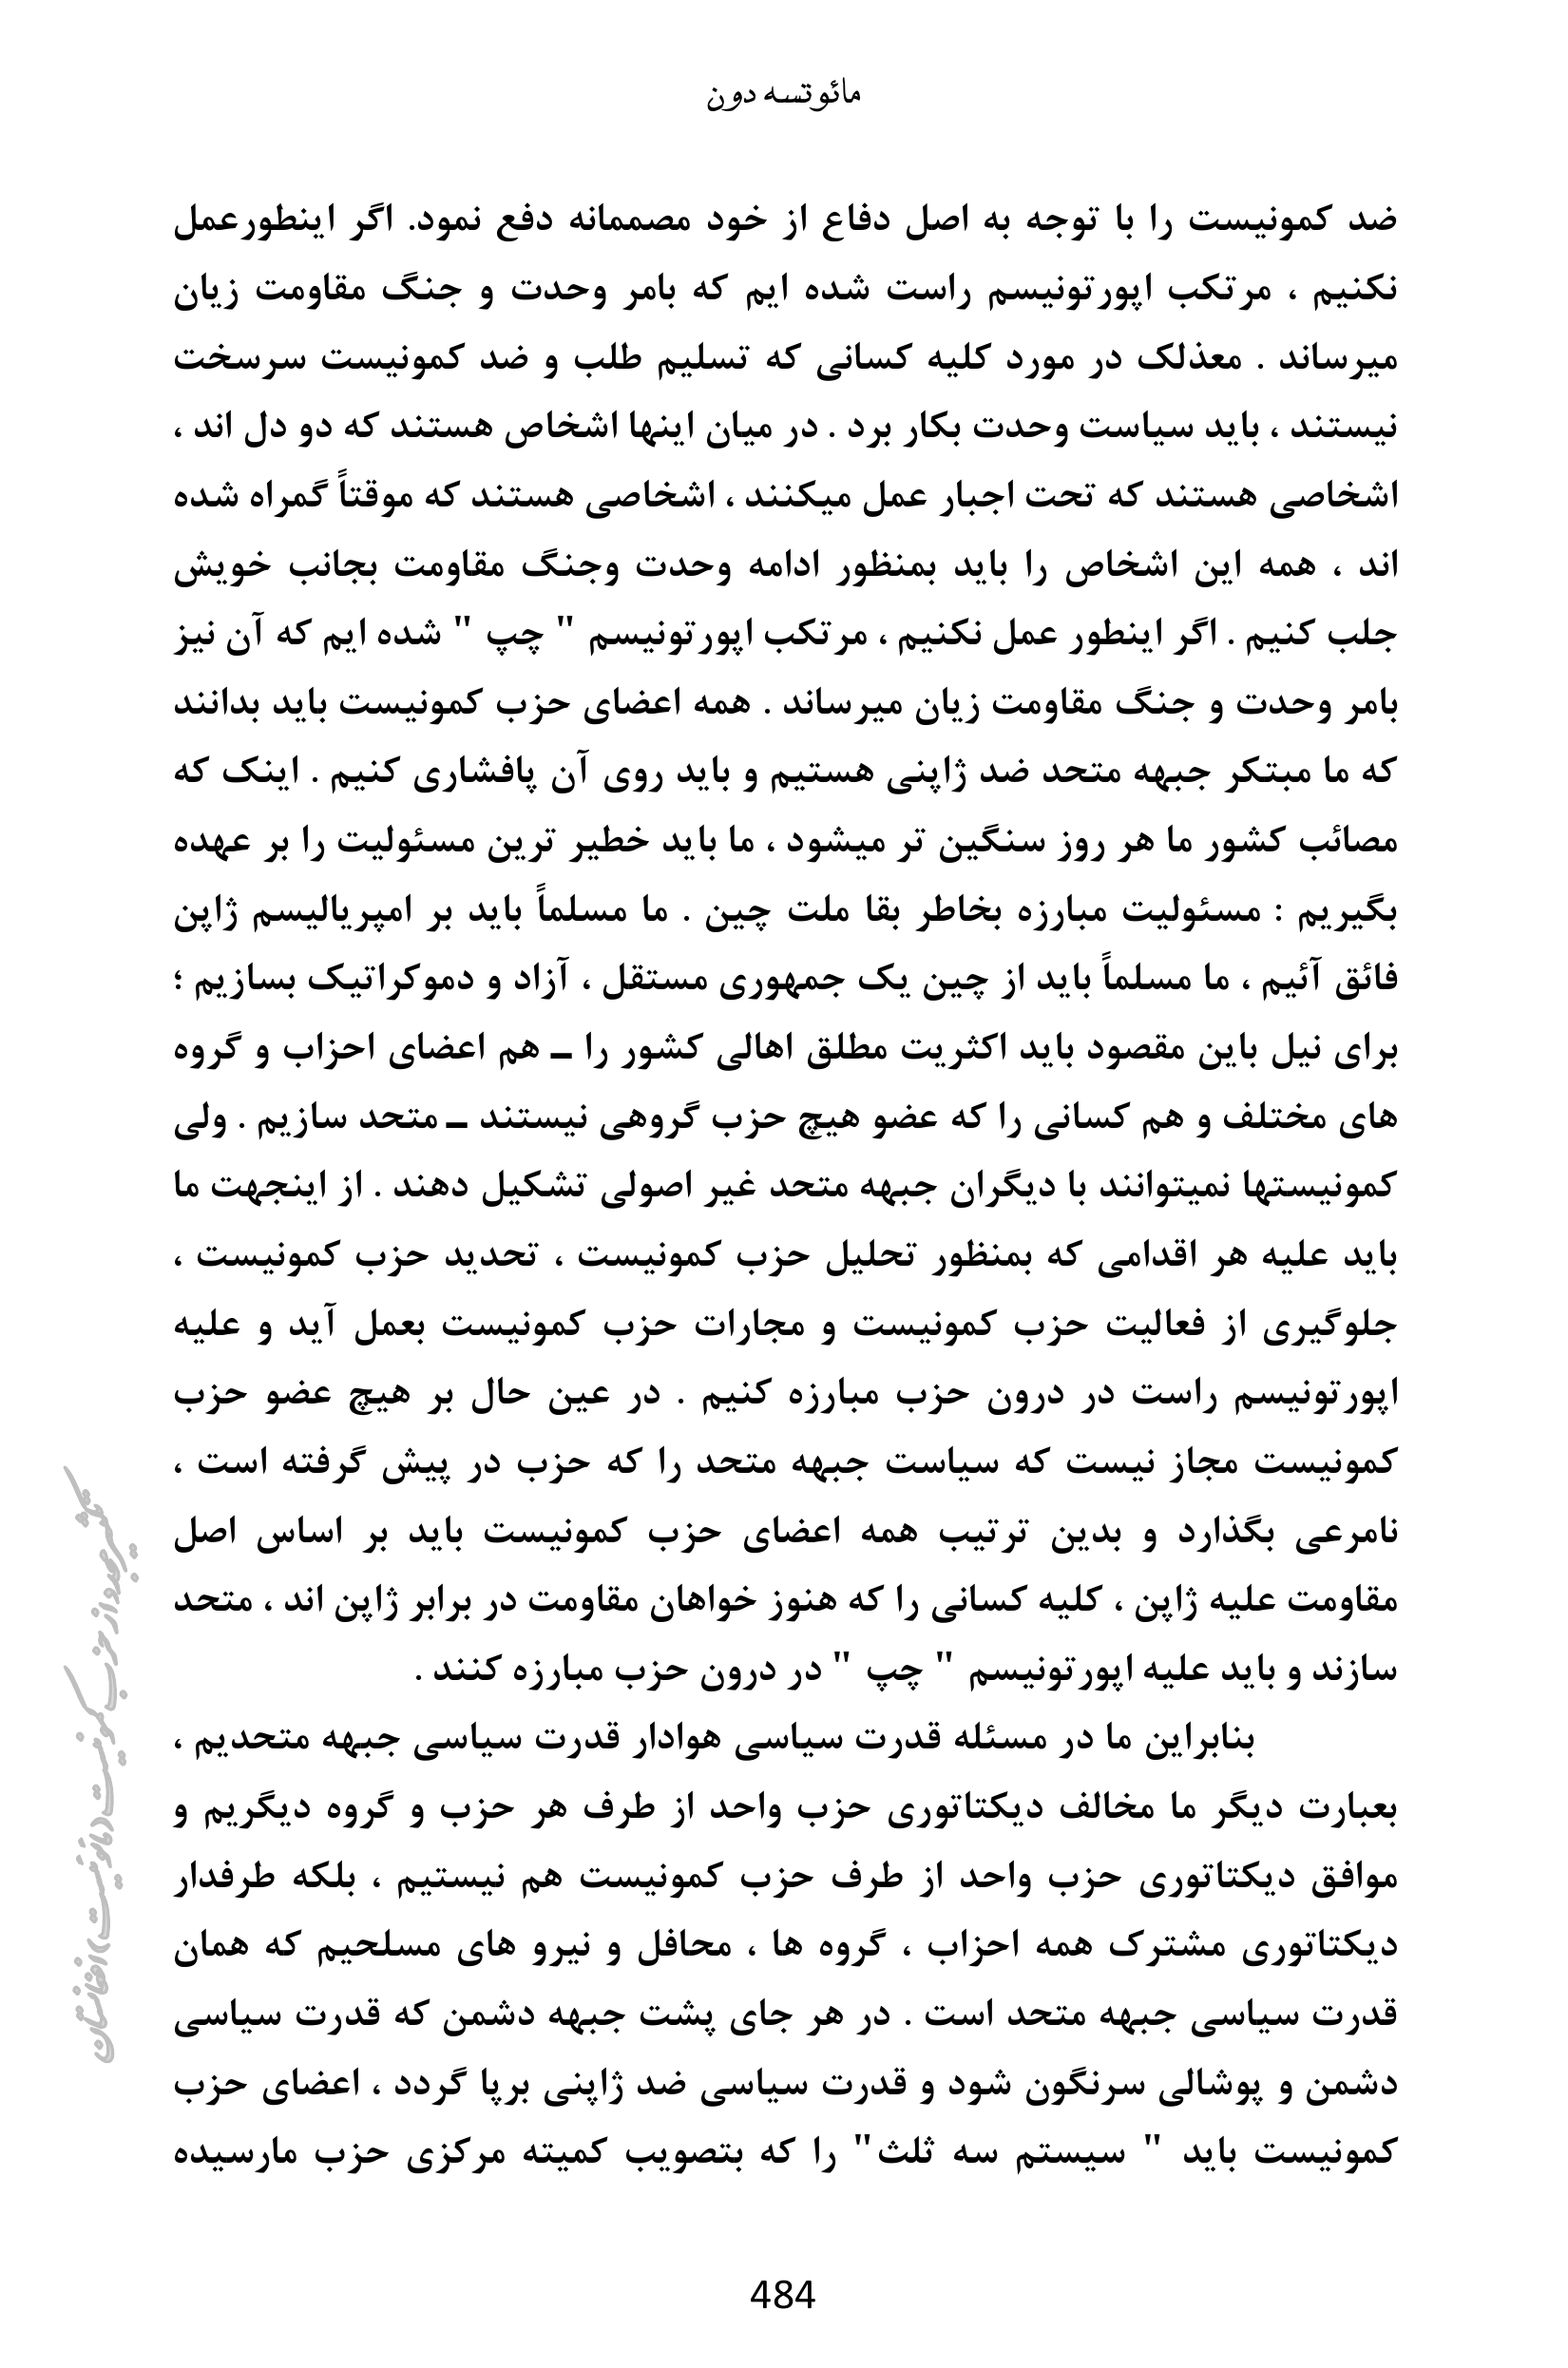 مائوتسه دون
ضد کمونیست را با توجه به اصل دفاع از خود مصممانه دفع نمود. اگر اینطورعمل
نکنیم ، مرتکب اپورتونیسم راست شده ایم که بامر وحدت و جنگ مقاومت زیان
میرساند . معذلک در مورد کلیه کسانی که تسلیم طلب و ضد کمونیست سرسخت
نیستند ، باید سیاست وحدت بکار برد . در میان اینها اشخاص هستند که دو دل اند ،
اشخاصی هستند که تحت اجبار عمل میکنند ، اشخاصی هستند که موقتاً گمراه شده
اند ، همه این اشخاص را باید بمنظور ادامه وحدت وجنگ مقاومت بجانب خویش
جلب کنیم . اگر اینطور عمل نکنیم ، مرتکب اپورتونیسم " چپ " شده ایم که آن نیز
بامر وحدت و جنگ مقاومت زیان میرساند . همه اعضای حزب کمونیست باید بدانند
که ما مبتکر جبهه متحد ضد ژاپنی هستیم و باید روی آن پافشاری کنیم . اینک که
مصائب کشور ما هر روز سنگین تر میشود ، ما باید خطیر ترین مسئولیت را بر عهده
بگیریم : مسئولیت مبارزه بخاطر بقا ملت چین . ما مسلماً باید بر امپریالیسم ژاپن
فائق آئیم ، ما مسلماً باید از چین یک جمهوری مستقل ، آزاد و دموکراتیک بسازیم ؛
برای نیل باین مقصود باید اکثریت مطلق اهالی کشور را ــ هم اعضای احزاب و گروه
های مختلف و هم کسانی را که عضو هیچ حزب گروهی نیستند ــ متحد سازیم . ولی
کمونیستها نمیتوانند با دیگران جبهه متحد غیر اصولی تشکیل دهند . از اینجهت ما
باید علیه هر اقدامی که بمنظور تحلیل حزب کمونیست ، تحدید حزب کمونیست ،
جلوگیری از فعالیت حزب کمونیست و مجارات حزب کمونیست بعمل آید و علیه
اپورتونیسم راست در درون حزب مبارزه کنیم . در عین حال بر هیچ عضو حزب
کمونیست مجاز نیست که سیاست جبهه متحد را که حزب در پیش گرفته است ،
نامرعی بگذارد و بدین ترتیب همه اعضای حزب کمونیست باید بر اساس اصل
مقاومت علیه ژاپن ، کلیه کسانی را که هنوز خواهان مقاومت در برابر ژاپن اند ، متحد
سازند و باید علیه اپورتونیسم " چپ " در درون حزب مبارزه کنند .
بنابراین ما در مسئله قدرت سیاسی هوادار قدرت سیاسی جبهه متحدیم ،
بعبارت دیگر ما مخالف دیکتاتوری حزب واحد از طرف هر حزب و گروه دیگریم و
موافق دیکتاتوری حزب واحد از طرف حزب کمونیست هم نیستیم ، بلکه طرفدار
دیکتاتوری مشترک همه احزاب ، گروه ها ، محافل و نیرو های مسلحیم که همان
قدرت سیاسی جبهه متحد است . در هر جای پشت جبهه دشمن که قدرت سیاسی
دشمن و پوشالی سرنگون شود و قدرت سیاسی ضد ژاپنی برپا گردد ، اعضای حزب
کمونیست باید " سیستم سه ثلث" را که بتصویب کمیته مرکزی حزب مارسیده
تکثیر مجدد از حزب کمونیست (مائوئیست) افغانستان
484